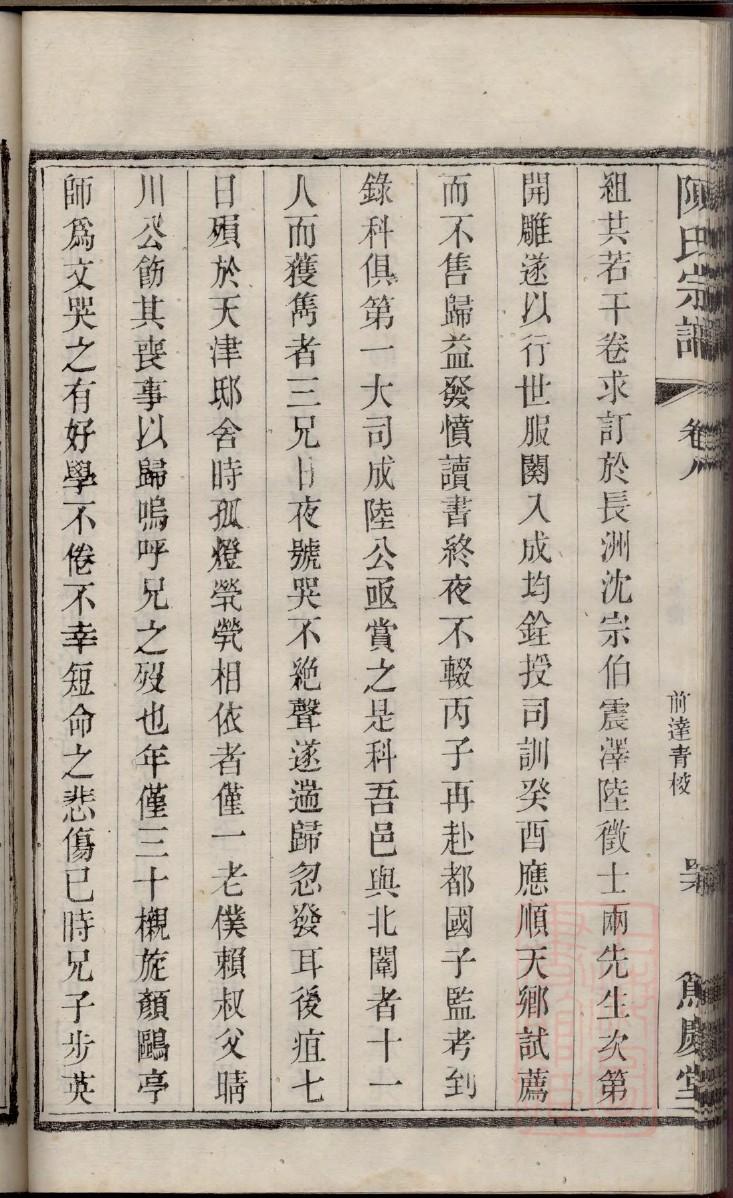 陳氏宗譜 卷八 前達青棱 篤慶堂
組共若干卷求訂於長洲沈宗伯震澤陸徵士兩先生次第
開雕遂以行世服闋入成均銓授司訓癸酉應順天鄉試薦
而不售歸益發憤讀書終夜不輟丙子再赴都國子監考到
錄科俱第一大司成陸公亟賞之是科吾邑與北闈者十一
人而獲雋者三兄日夜號哭不絕聲遂遄歸忽發耳後疽七
日殞於天津邸舍時孤燈煢煢相依者僅一老僕賴叔父晴
川公飭其喪事以歸嗚呼兄之歿也年僅三十櫬旋顏鷗亭
師爲文哭之有好學不倦不幸短命之悲傷已時兄子步英